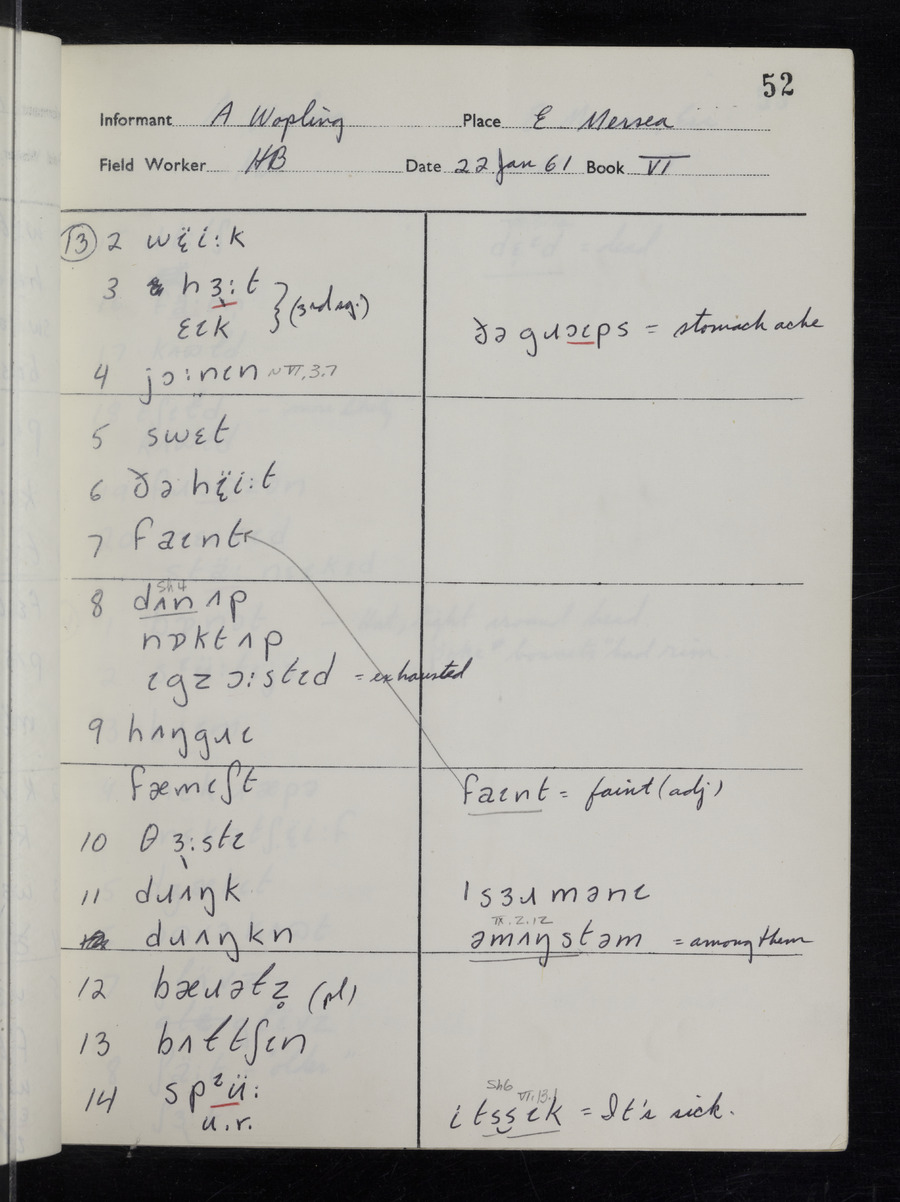 52
Informant A Wopling Place E Mersea
Field Worker HB Date 22 Jan 61 Book VI
13 2 wɛ̈i:k
3 hɜ:t } (3rd sg.)
ɛɩk
ðə gɹɔɩps = stomach ache
4 jɔ:nɩn ~VI.3.7
5 swɛt
6 ðə hɛ̈i:t
7 faɩnt
8 dʌn ʌp
Sh4
nɒkt ʌp
ɩgzɔ:stɩd = exhausted
9 hʌŋgɹɩ
fæmɩʃt
faɩnt = faint (adj)
10 θɜ:stɩ
11 dɹʌŋk
ˈsɜɹmənɩ
dɹʌŋkn
IX.2.12
əmʌŋstəm = among them
12 bæɹətz̥ (pl)
13 bʌttʃɩn
14 spᶦü:
u.r.
Sh6
VI.13.1
itssɩk = It's sick.